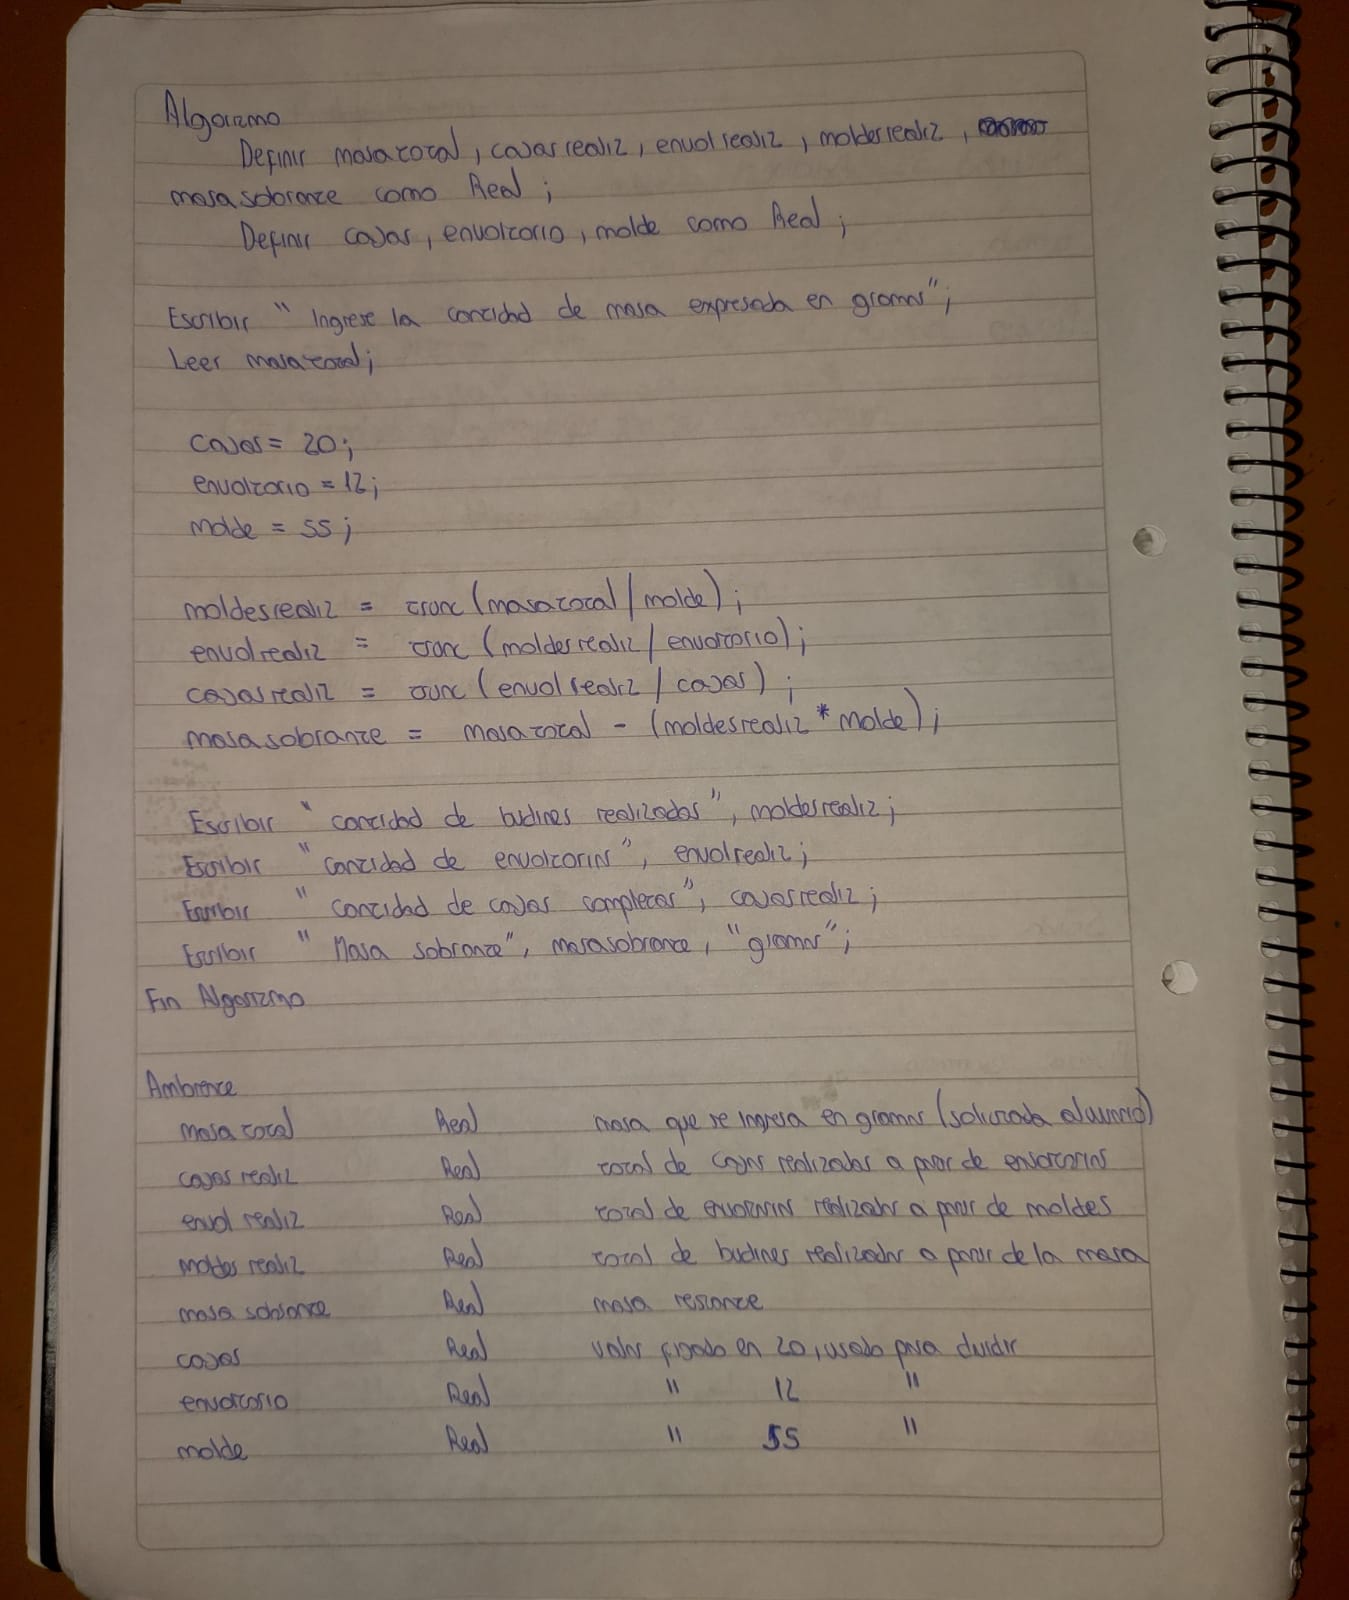 Algoritmo
Definir masatotal, cajasrealiz, envolrealiz, moldesrealiz,
masasobrante como Real;
Definir cajas, envoltorio, molde como Real;
Escribir " Ingrese la cantidad de masa expresada en gramos";
Leer masatotal;
cajas = 20;
envoltorio = 12;
molde = 55;
moldesrealiz = trunc (masatotal / molde);
envolrealiz = trunc (moldesrealiz / envoltorio);
cajasrealiz = trunc (envolrealiz / cajas);
masasobrante = masatotal - (moldesrealiz * molde);
Escribir " cantidad de budines realizados", moldesrealiz;
Escribir " cantidad de envoltorios", envolrealiz;
Escribir " cantidad de cajas completas", cajasrealiz;
Escribir " Masa sobrante", masasobrante, "gramos";
Fin Algoritmo
Ambiente
masa total Real masa que se ingresa en gramos (solicitada al usuario)
cajas realiz Real total de cajas realizadas a partir de envoltorios
envol realiz Real total de envoltorios realizados a partir de moldes
moldes realiz Real total de budines realizados a partir de la masa
masa sobrante Real masa restante
cajas Real valor fijado en 20, usado para dividir
envoltorio Real " 12 "
molde Real " 55 "